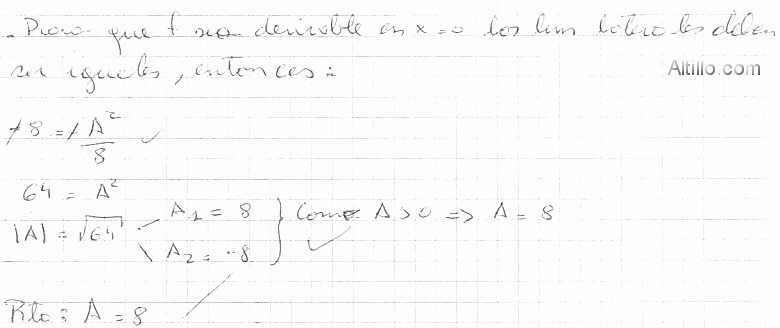 . Para que f sea derivable en x=0 los lim laterales deben
ser iguales, entonces:
Altillo.com
-8 = - A²/8
64 = A²
|A| = √64
A₁ = 8
A₂ = -8
Como A > 0 => A = 8
Rta: A = 8